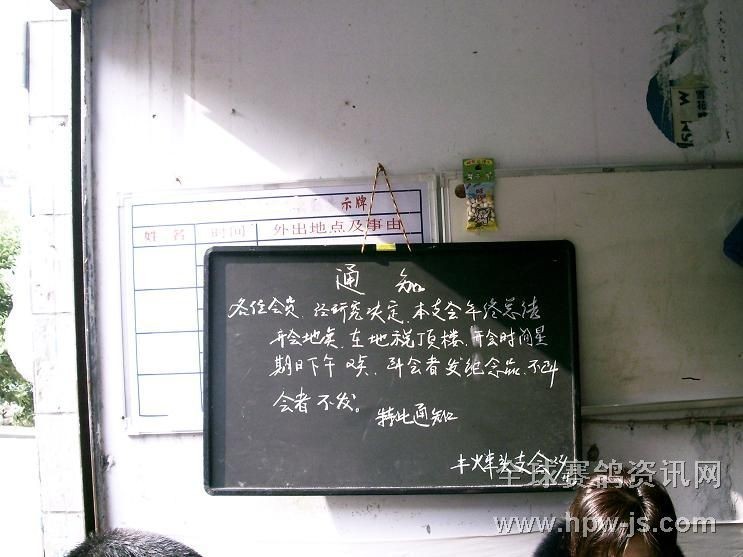 示牌
姓名 时间 外出地点及事由
通知
各位会员、经研究决定、本支会年终总结
开会地点、在地税顶楼、开会时间星
期日下午2点、到会者发纪念品、不到
会者不发。
特此通知
火车头支会
全球赛鸽资讯网
www.hpw-js.com